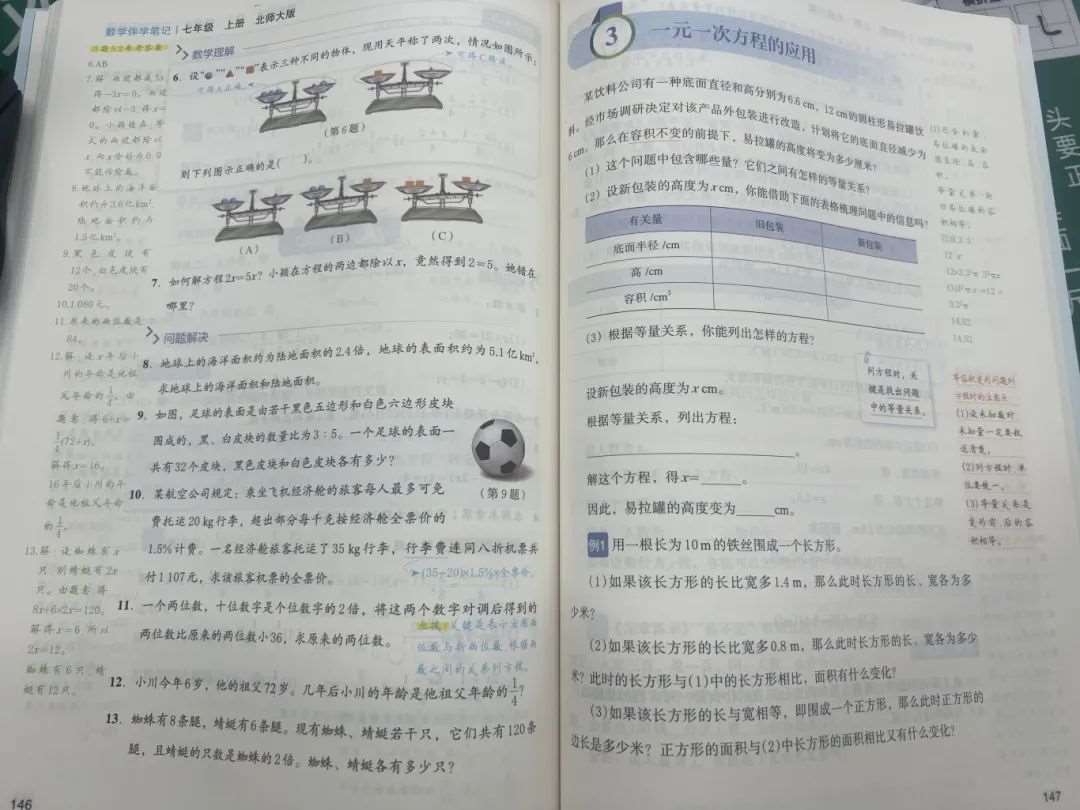 数学伴学笔记 七年级 上册 北师大版
习题5.2参考答案
6.AB
7.解 两边都减5x
得-3x=0。两边
都除以-3 得x=
0。小颖在方程的
两边都除以
不能作除数。
8.地球上的海洋面
积约为3.6亿km²
陆地面积约为
1.5亿km²。
9.黑色皮块有
12个，白色皮块有
20个。
10.1080元。
11.原来的两位数是
84。
12.解 设x年后小
川的年龄是他祖
父年龄的1/4。由
题意 得6+x=
1/4(72+x)。
解得x=16。
16年后小川的年
龄是他祖父年龄
的1/4。
13.解 设蜘蛛有x
只 则蜻蜓有2x
只。由题意 得
8x+6×2x=120。
解得x=6 所以
2x=12。
蜘蛛有6只 蜻
蜓有12只。
数学理解
6. 设“●”“▲”“■”表示三种不同的物体，现用天平称了两次，情况如图所示：
(第6题)
则下列图示正确的是( )。
(A) (B) (C)
7. 如何解方程2x=5x？小颖在方程的两边都除以x，竟然得到2=5。她错在
哪里？
问题解决
8. 地球上的海洋面积约为陆地面积的2.4倍，地球的表面积约为5.1亿km²，
求地球上的海洋面积和陆地面积。
9. 如图，足球的表面是由若干黑色五边形和白色六边形皮块
围成的，黑、白皮块的数量比为3：5。一个足球的表面一
共有32个皮块，黑色皮块和白色皮块各有多少？
(第9题)
10. 某航空公司规定：乘坐飞机经济舱的旅客每人最多可免
费托运20 kg行李，超出部分每千克按经济舱全票价的
1.5%计费。一名经济舱旅客托运了35 kg行李，行李费连同八折机票共
付1 107元，求该旅客机票的全票价。
(35-20)×1.5%×全票价
11. 一个两位数，十位数字是个位数字的2倍，将这两个数字对调后得到的
两位数比原来的两位数小36，求原来的两位数。
点拨 关键是表示出原两
位数与新两位数 根据两
数之间的关系列方程。
12. 小川今年6岁，他的祖父72岁。几年后小川的年龄是他祖父年龄的1/4？
13. 蜘蛛有8条腿，蜻蜓有6条腿。现有蜘蛛、蜻蜓若干只，它们共有120条
腿，且蜻蜓的只数是蜘蛛的2倍。蜘蛛、蜻蜓各有多少只？
146
3 一元一次方程的应用
某饮料公司有一种底面直径和高分别为6.6 cm，12 cm的圆柱形易拉罐饮
料。经市场调研决定对该产品外包装进行改造，计划将它的底面直径减少为
6 cm。那么在容积不变的前提下，易拉罐的高度将变为多少厘米？
(1)这个问题中包含哪些量？它们之间有怎样的等量关系？
(2)设新包装的高度为x cm，你能借助下面的表格梳理问题中的信息吗？
有关量 旧包装 新包装
底面半径/cm
高/cm
容积/cm³
(3)根据等量关系，你能列出怎样的方程？
列方程时，关
键是找出问题
中的等量关系。
设新包装的高度为x cm。
根据等量关系，列出方程：
____________________。
解这个方程，得x=______。
因此，易拉罐的高度变为______cm。
例1 用一根长为10 m的铁丝围成一个长方形。
(1)如果该长方形的长比宽多1.4 m，那么此时长方形的长、宽各为多
少米？
(2)如果该长方形的长比宽多0.8 m，那么此时长方形的长、宽各为多少
米？此时的长方形与(1)中的长方形相比，面积有什么变化？
(3)如果该长方形的长与宽相等，即围成一个正方形，那么此时正方形的
边长是多少米？正方形的面积与(2)中长方形的面积相比又有什么变化？
等量关系
14.52
14.52
等体积变形问题列
方程时的注意点
(1)设未知数时
未知量一定要叙
述清楚。
(2)列方程时 单
位要统一。
(3)等量关系是
变形前、后的容
积相等。
147
头
要
正